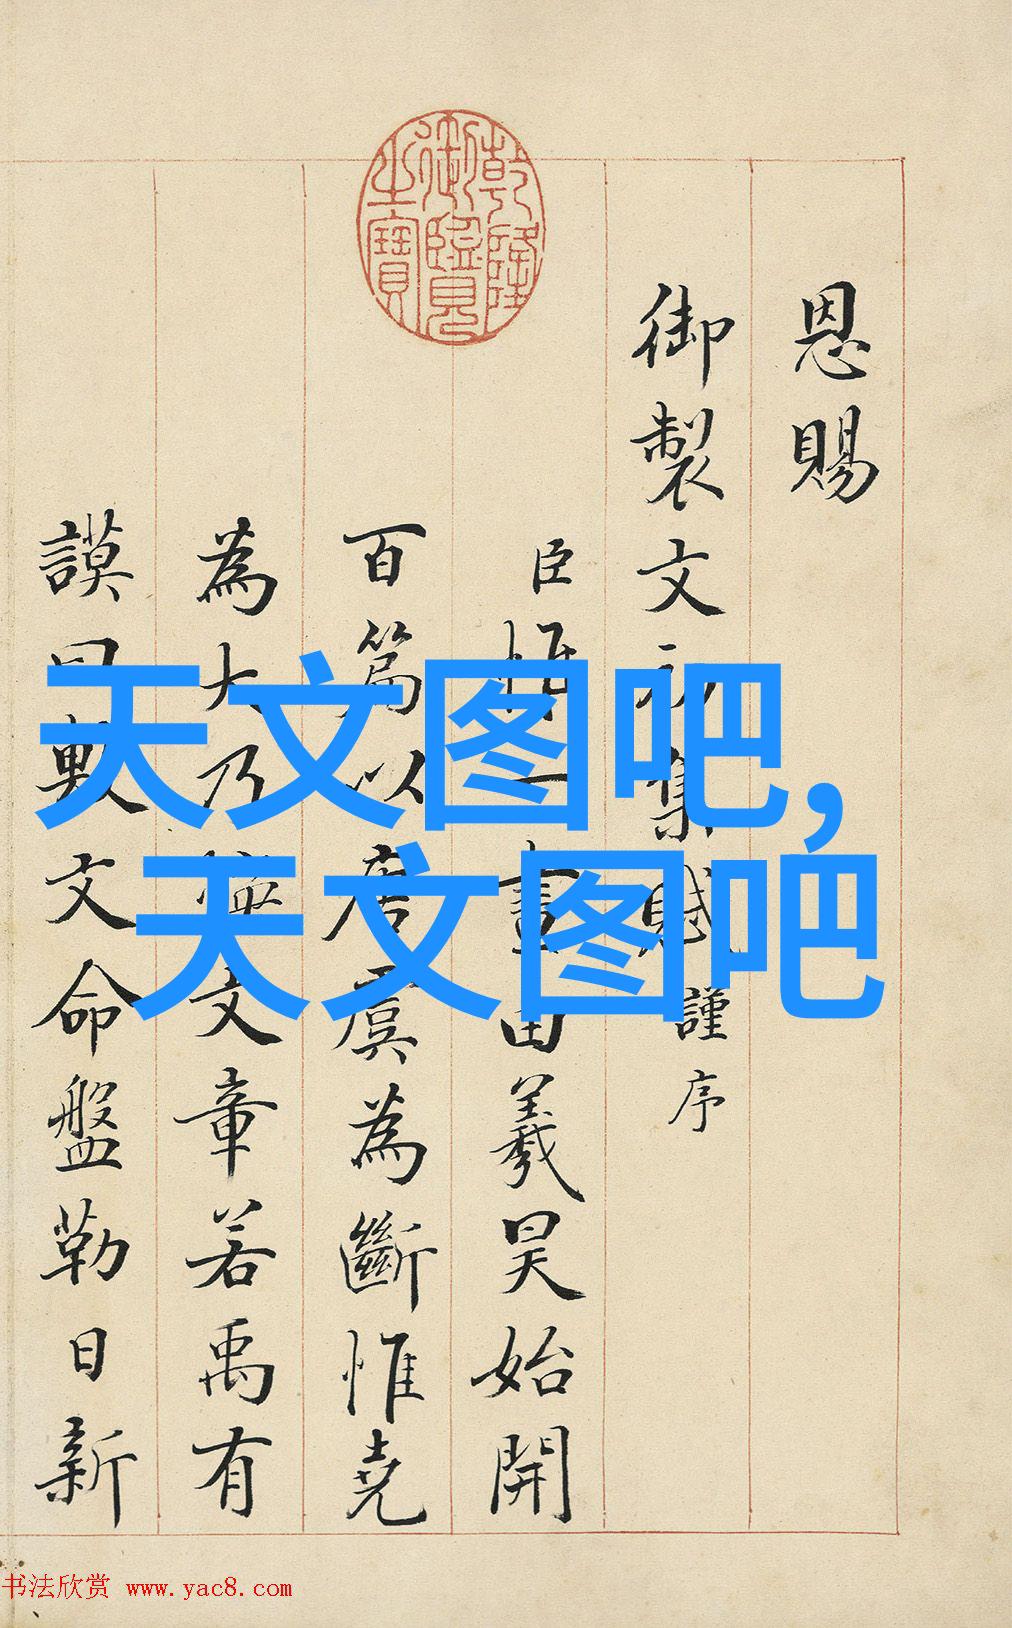 恩賜
御製文初集賦謹序
臣惟一畫由羲昊始開
百篇以唐虞為斷惟堯
為大乃煥文章若禹有
謨曰敷文命盤勒日新
乾隆
御覽
之寶
天文图吧,
天文图吧
书法欣赏 www.yac8.com